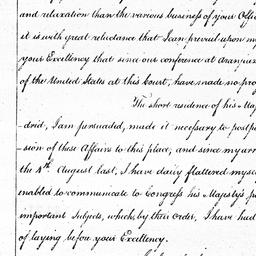 and relaxation than the various business of your Offi
it is with great reluctance that I can prevail upon my
your Excellency that since our conference at Aranjuez
of the United States at this Court, have made no pro
The short residence of his Ma
-drid, I am persuaded, made it necessary to postp
-sion of these Affairs to this place, and since my arr
the 4th August last, I have daily flattered mysel
enabled to communicate to Congress his Majesty's p
important Subjects, which, by their order, I have had
of laying before your Excellency.